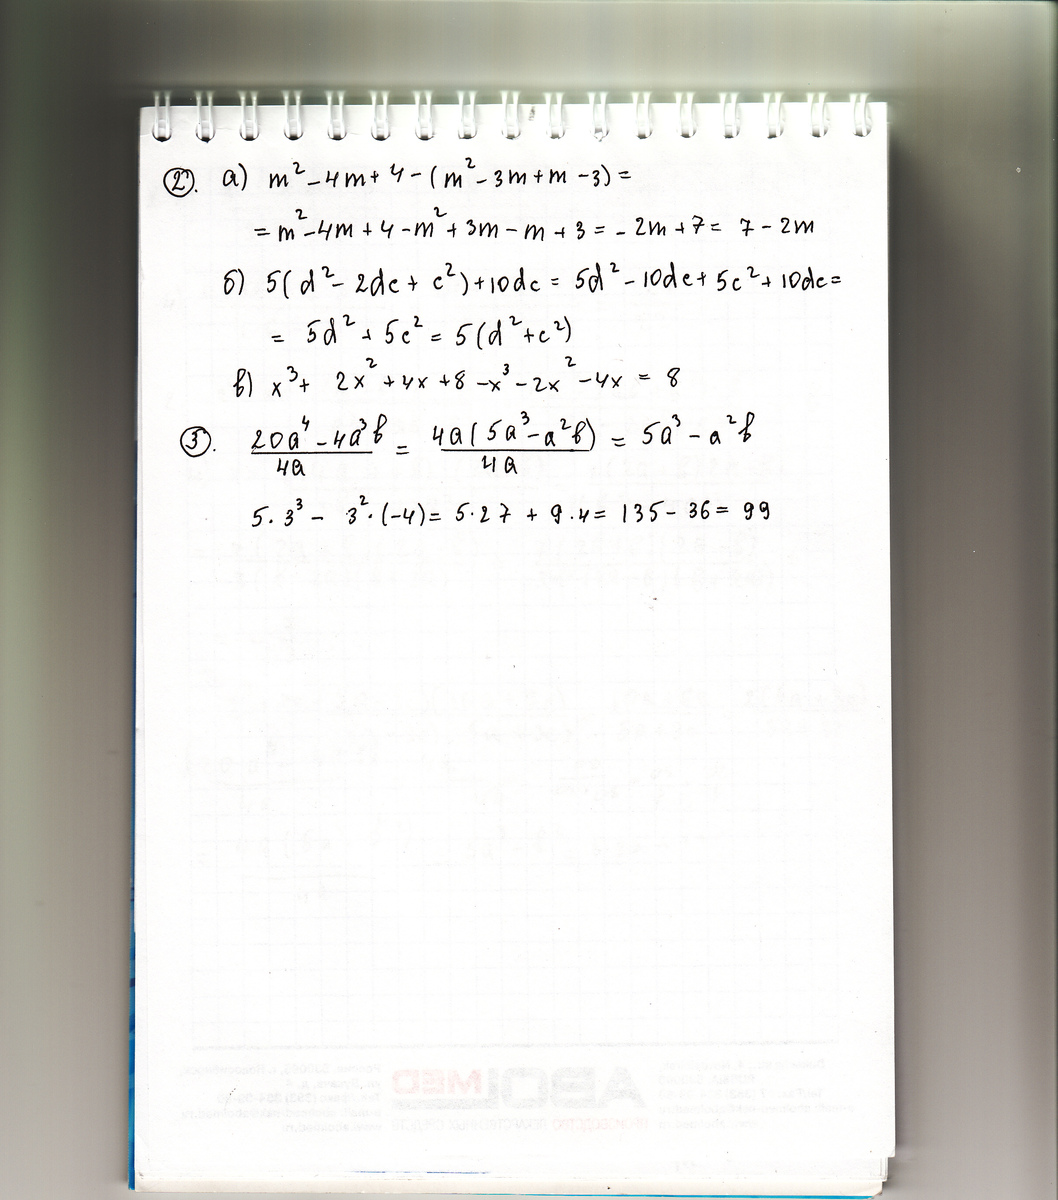 ②. а) m² – 4m + 4 – (m² – 3m + m – 3) =
= m² – 4m + 4 – m² + 3m – m + 3 = – 2m + 7 = 7 – 2m
б) 5(d² – 2dc + c²) + 10dc = 5d² – 10dc + 5c² + 10dc =
= 5d² + 5c² = 5(d² + c²)
в) x³ + 2x² + 4x + 8 – x³ – 2x² – 4x = 8
③. (20a⁴ – 4a³b)/4a = 4a(5a³ – a²b)/4a = 5a³ – a²b
5·3³ – 3²·(–4) = 5·27 + 9·4 = 135 – 36 = 99